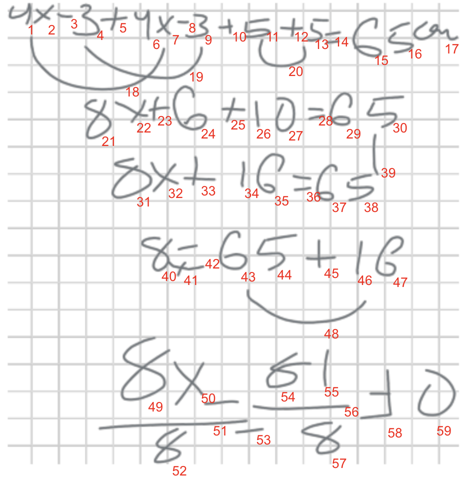 4x-3+4x-3+5+5=65cm
1 2 3 4 5 6 7 8 9 10 11 12 13 14 15 16 17
18 19 20
8x+6+10=65
21 22 23 24 25 26 27 28 29 30
8x+16=65
31 32 33 34 35 36 37 38 39
8x=65+16
40 41 42 43 44 45 46 47
48
8x = 81 = 10
49 50 51 53 54 55 56 58 59
8 8
52 57